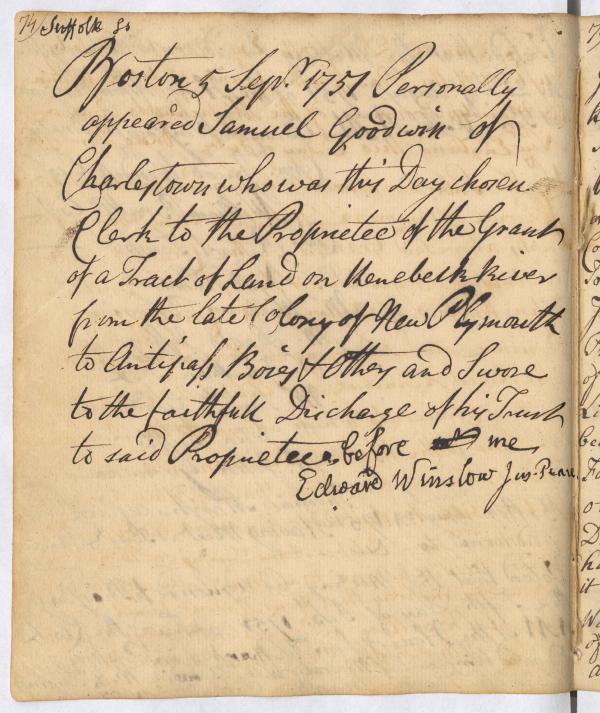 74 Suffolk Ss
Boston 5 Sepr. 1751 Personally
appeared Samuel Goodwin of
Charlestown who was this Day chosen
Clerk to the Proprietee of the Grant
of a Tract of Land on Kenebeck River
from the late Colony of New Plymouth
to Antipass Boies & Others and Swore
to the faithfull Discharge of his Trust
to said Proprietees before me
Edward Winslow Jus. Peace